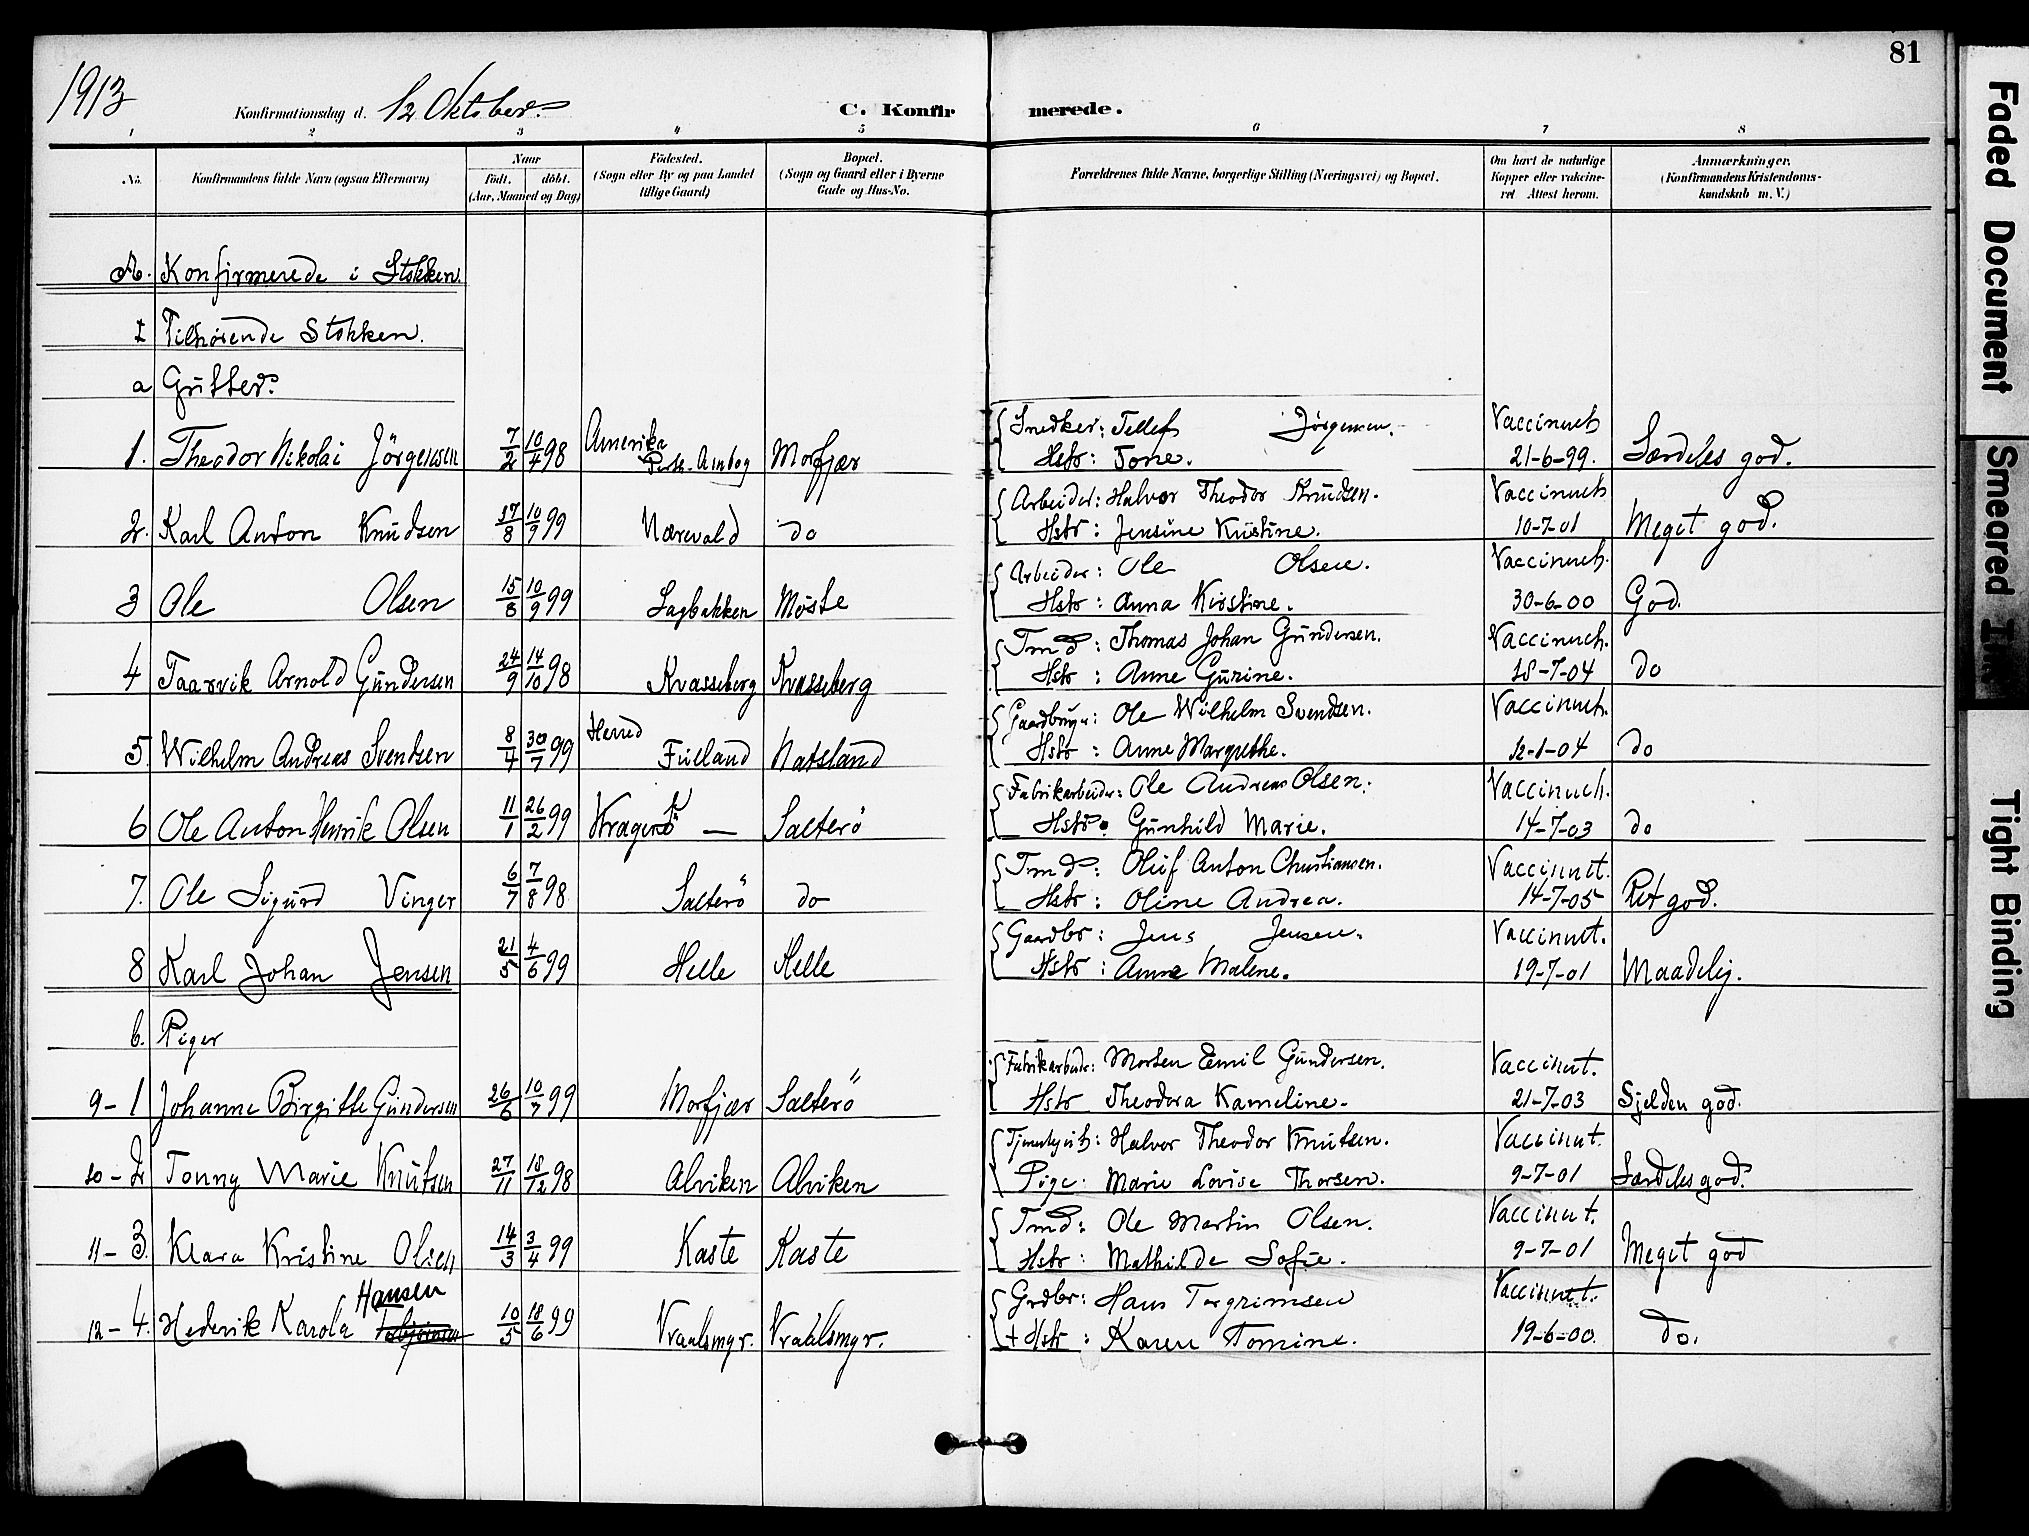 81
1913
Konfirmationsdag d. 12 Oktober.
C. Konfirmerede.
1 2 3 4 5 6 7 8
No.
Konfirmandens fulde Navn (ogsaa Efternavn)
Naar
födt. döbt.
(Aar, Maaned og Dag)
Födested.
(Sogn eller By og paa Landet
tillige Gaard)
Bopæl.
(Sogn og Gaard eller i Byerne
Gade og Hus-No.
Forældrenes fulde Navne, borgerlige Stilling (Næringsvei) og Bopæl.
Om havt de naturlige
Kopper eller vaccine-
ret Attest herom.
Anmærkninger.
(Konfirmandens Kristendoms-
kundskab m. V.)
A. Konfirmerede i Stokken.
I Tilhørende Stokken.
a Gutter.
1. Theodor Nikolai Jörgensen 7/2 10/4 98 Amerika Perth-Amboy Morfjær
Snedker: Tellef Jørgensen. Vaccineret
Hstr: Tone. 21-6-99. Særdeles god.
2. Karl Anton Knudsen 17/8 10/9 99 Nærevold do
Arbeider: Halvor Theodor Knudsen. Vaccineret
Hstr: Jensine Kristine. 10-7-01 Meget god.
3 Ole Olsen 15/8 10/9 99 Sagbakken Møste
Arbeider: Ole Olsen. Vaccineret.
Hstr: Anna Kirstine. 30-6-00 God.
4 Taarvik Arnold Gundersen 24/9 14/10 98 Kvasseberg Kvasseberg
Tmd: Thomas Johan Gundersen. Vaccineret.
Hstr: Anne Gurine. 18-7-04 do
5. Wilhelm Andreas Svendsen 8/4 30/7 99 Herred Fulland Natsland
Gaardbruger: Ole Wilhelm Svendsen. Vaccineret.
Hstr: Anne Margrethe. 12-1-04 do
6 Ole Anton Henrik Olsen 11/1 26/2 99 Kragerö — Salterö
Fabrikarbeider: Ole Andreas Olsen. Vaccineret.
Hstr: Gunhild Marie. 14-7-03 do
7. Ole Sigurd Vinger 6/7 7/8 98 Salterö do
Tmd: Oluf Anton Christiansen. Vaccineret.
Hstr: Oline Andrea. 14-7-05 Ret god.
8 Karl Johan Jensen 21/5 4/6 99 Helle Helle
Gaardbr: Jens Jensen. Vaccineret.
Hstr: Anne Malene. 19-7-01 Maadelig.
b. Piger
9-1 Johanne Birgitte Gundersen 26/6 10/7 99 Morfjær Salterö
Fabrikarbeider: Morten Emil Gundersen. Vaccineret.
Hstr Theodora Kameline. 21-7-03 Sjelden god.
10-2 Tonny Marie Knutsen 27/11 18/12 98 Alviken Alviken
Halvor Theodor Knutsen. Vaccineret.
Pige: Marie Lovise Thorsen. 9-7-01 Særdeles god.
11-3. Klara Kristine Olsen 14/3 3/4 99 Kaste Kaste
Tmd: Ole Martin Olsen. Vaccineret.
Hstr: Mathilde Sofie. 9-7-01 Meget god
Hansen
12-4. Hedevik Karola 10/5 18/6 99 Vraalsmyr. Vraalsmyr.
Grdbr: Hans Torgrimsen Vaccineret.
+ Hstr: Karen Tomine. 19-6-00. do.
Faded Document
Smeared Ink
Tight Binding